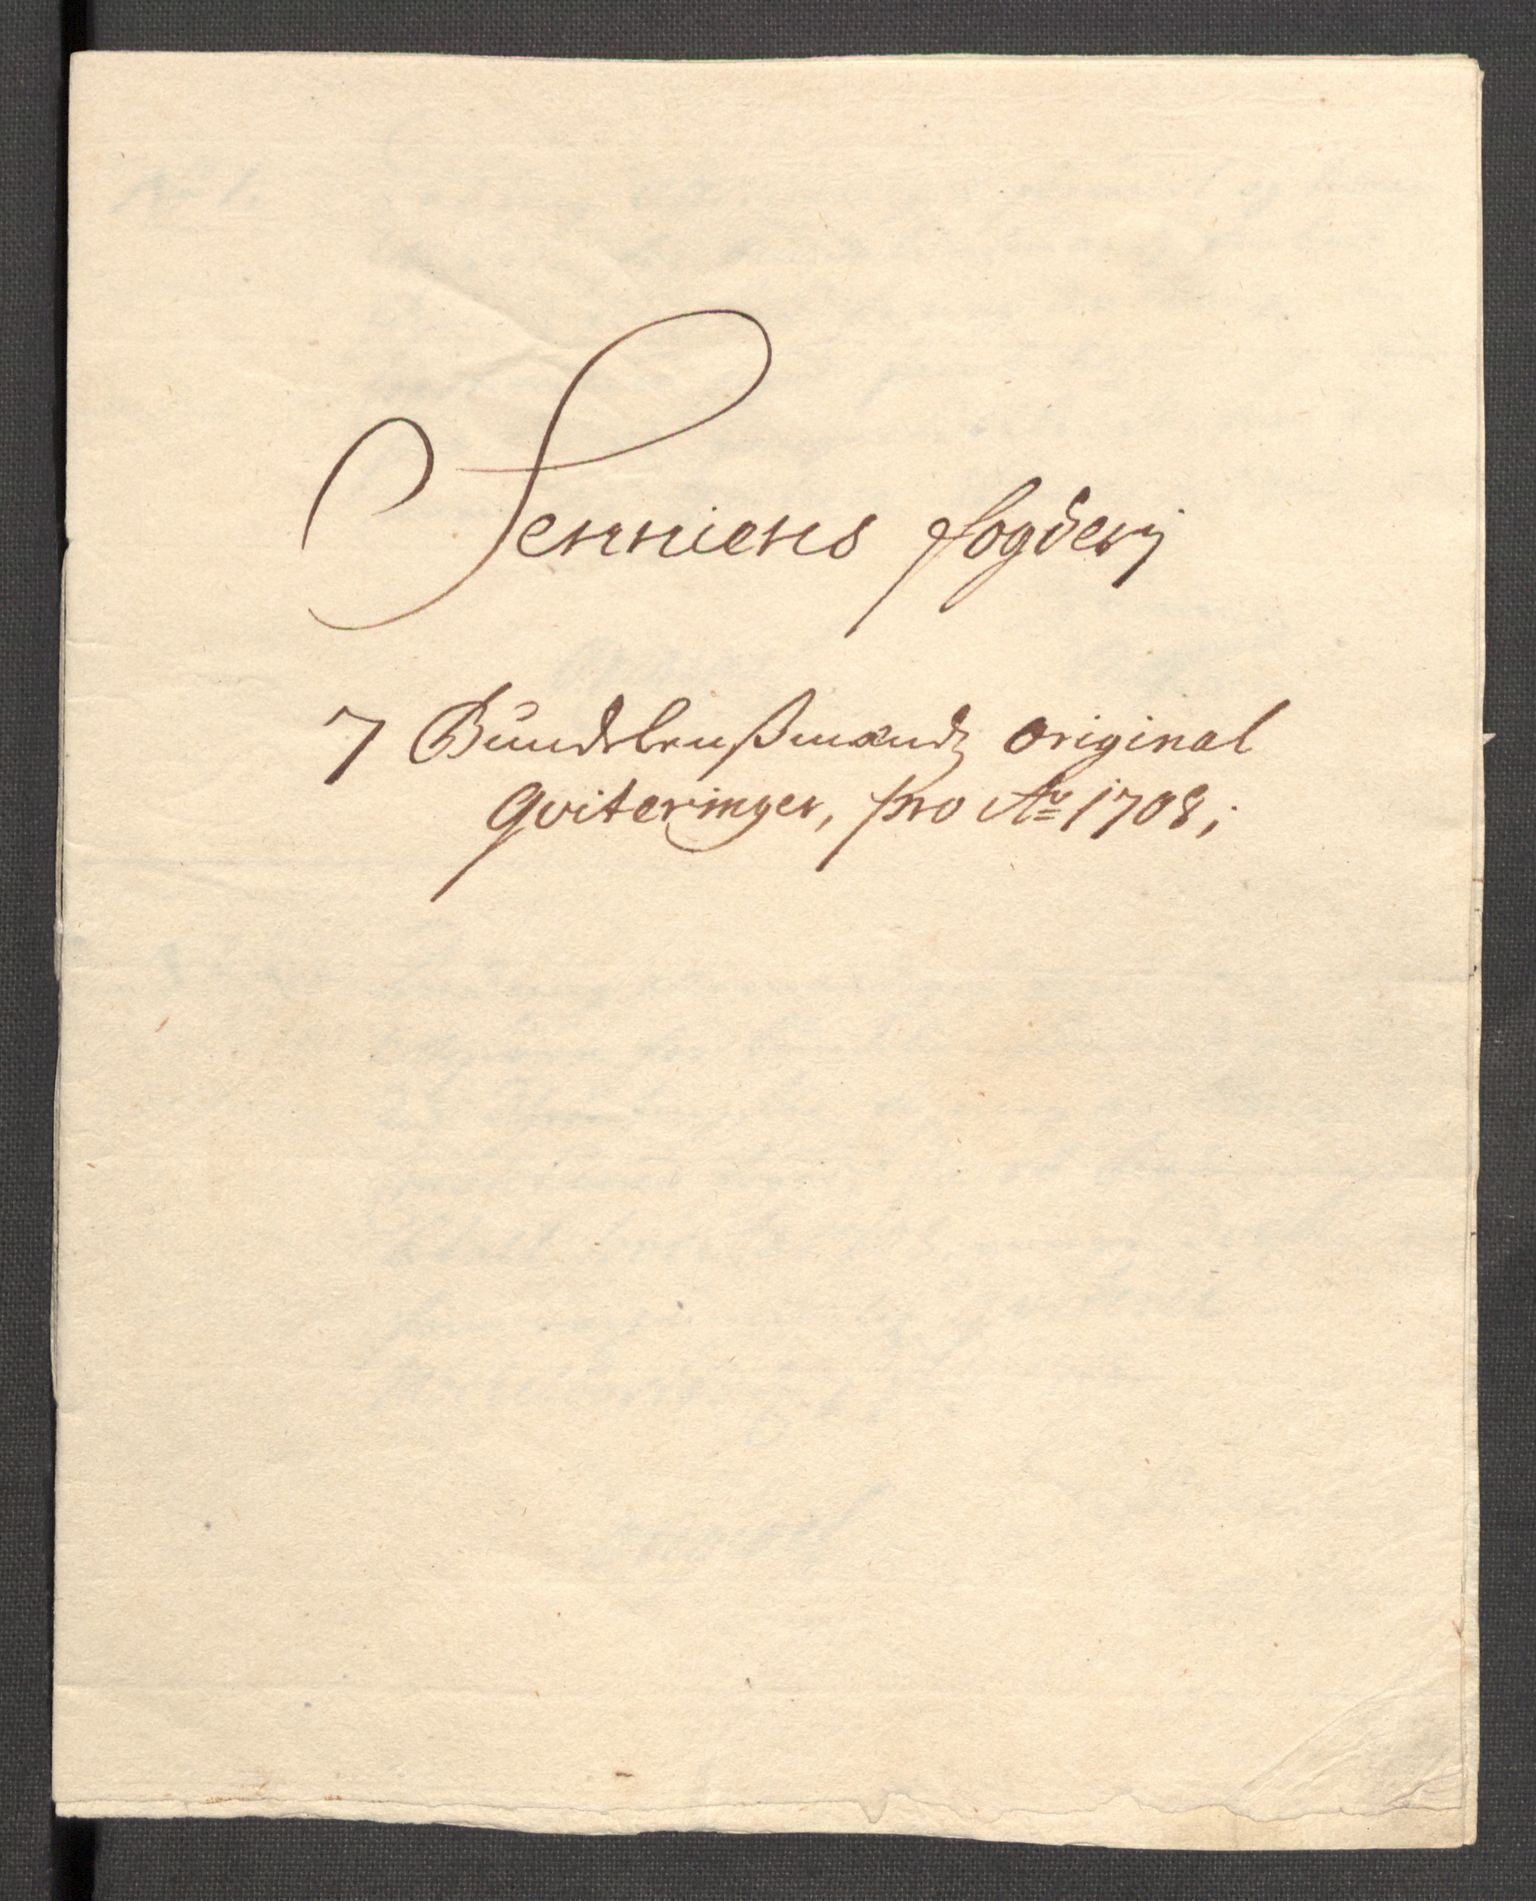 Senniens fogderj
7 Bundelensßmændz original
Qviteringer, pro Ao 1708;